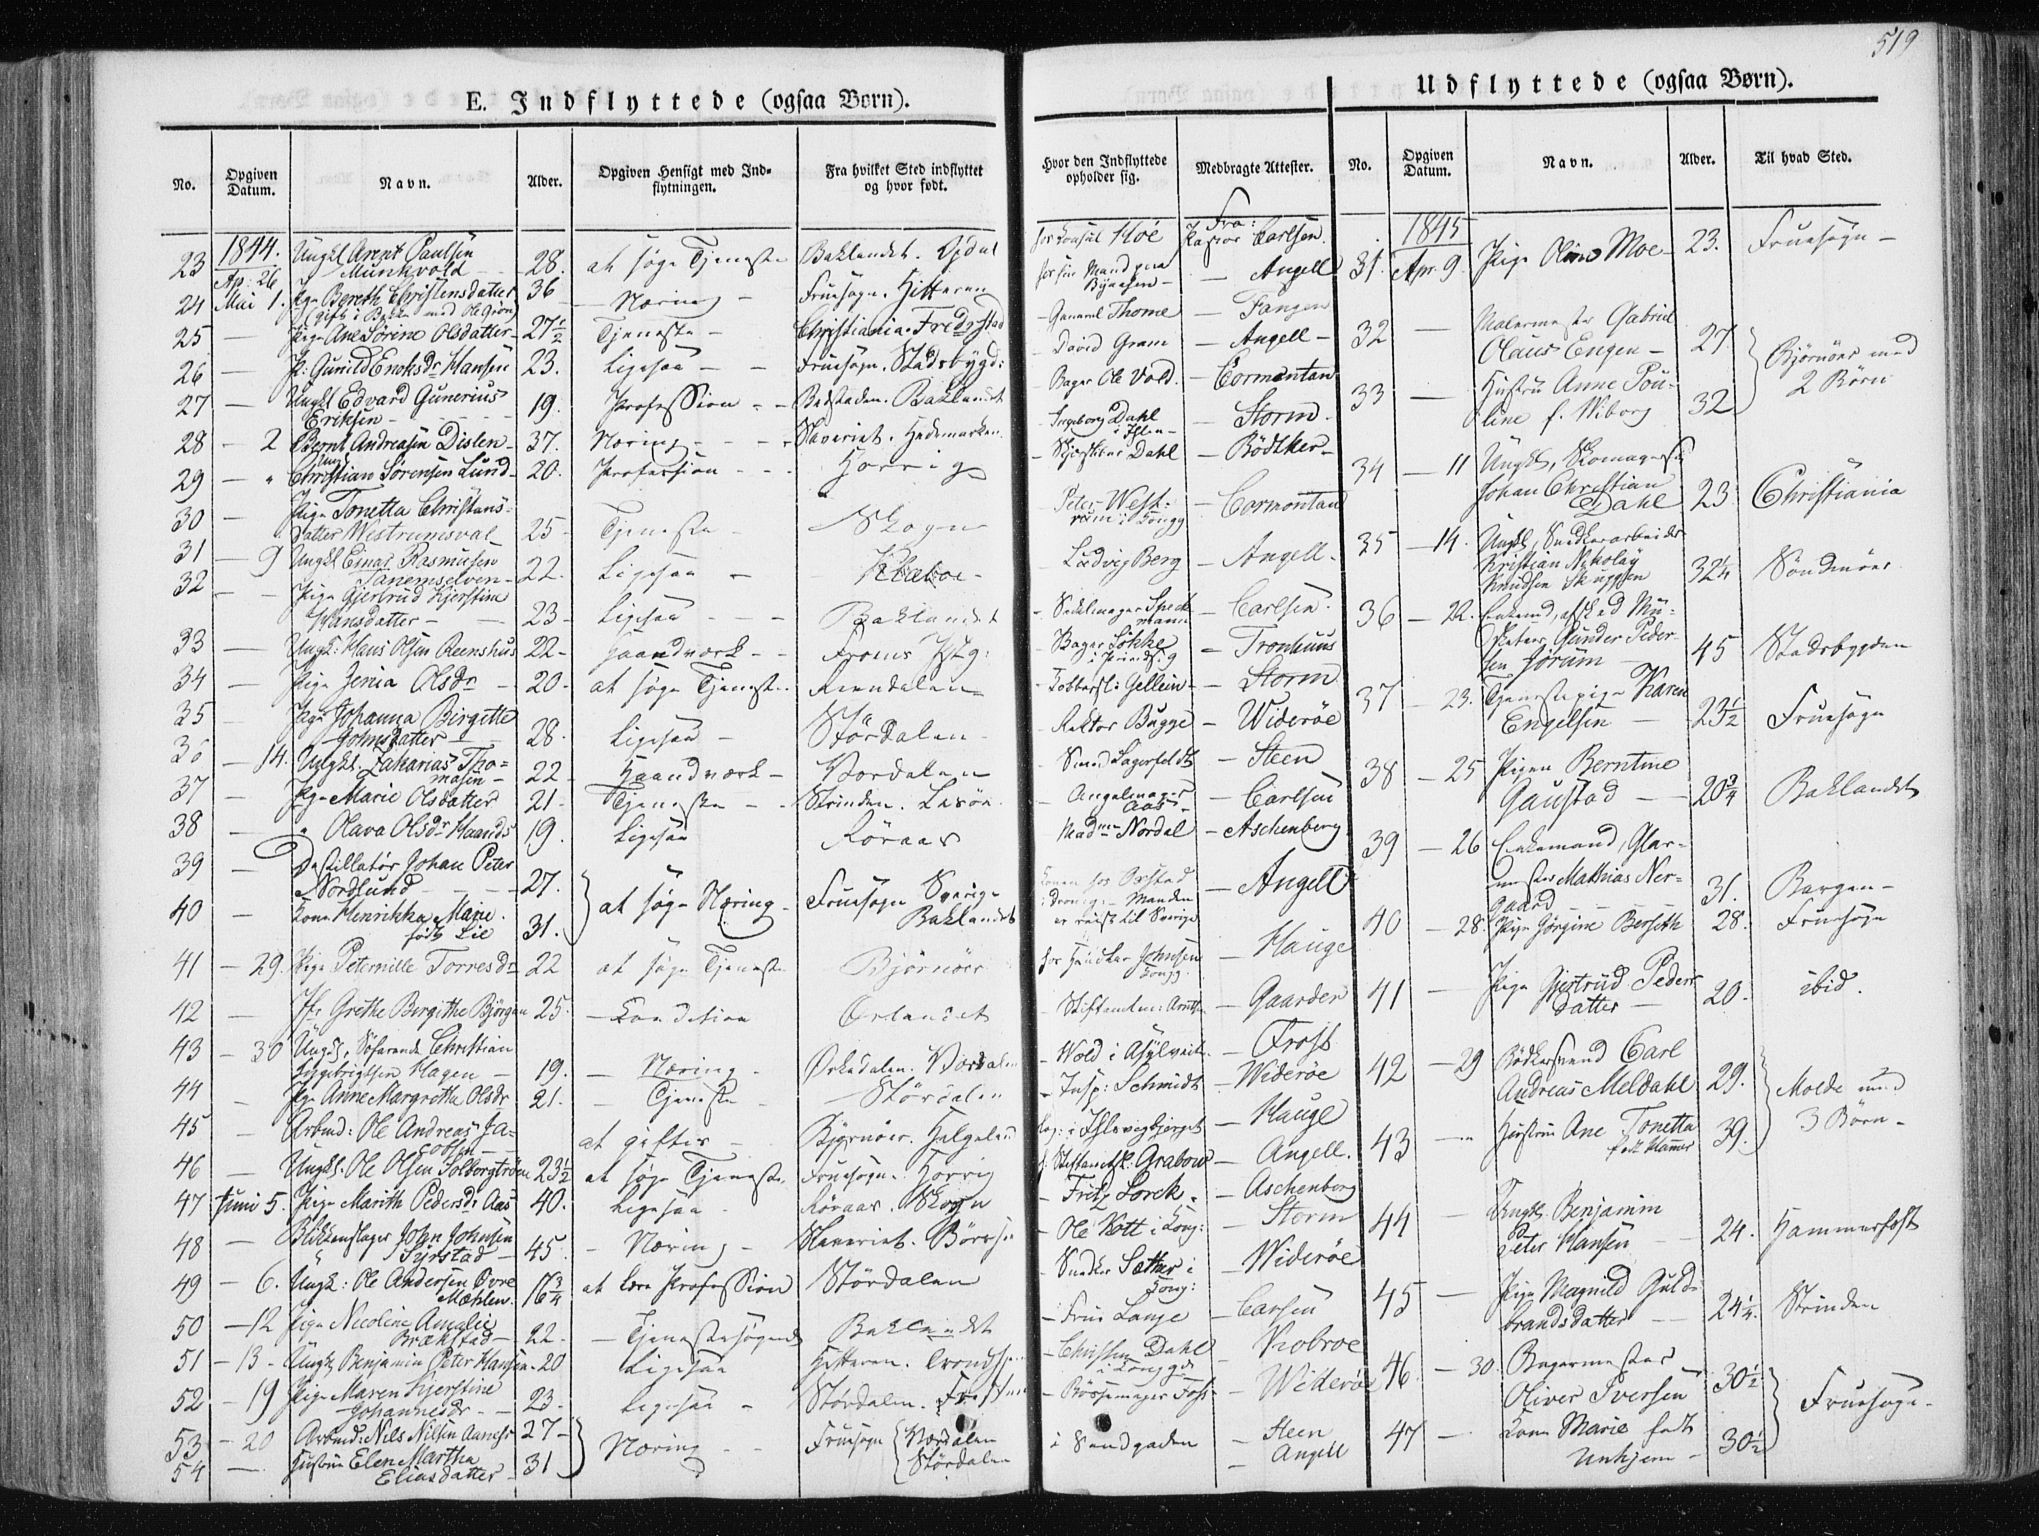 519
E. Indflyttede (ogsaa Børn).
No. Opgiven Datum. Navn. Alder. Opgiven Hensigt med Indflytningen. Fra hvilket Sted indflyttet og hvor født. Hvor den Indflyttede opholder sig. Medbragte Attester.
1844. Fra:
23 Ap. 26 Ungkl Arent Paulsen Munkvold 28. at søge Tjeneste Baklandet. Opdal Moe Pastor Carlsen.
24 Mai 1. Pige Bereth Christensdatter 36 Næring Fruesogn. Hitteren Angell
25 — Pige Ane Sørine Olsdatter 27½ Tjeneste Christiania. Fredrstad General Thome — Fangen
26 — P: Gunild Enoksdr Hansen 23. Ligesaa Fruesogn. Stadsbygd: David Gram — Angell
27 — Ungkl Edvard Gunerius Eriksen 19. Profession Baklandet Bager Ole Vold. — Cormontan
28 — 2 Bernt Andreasen Dislen 37. Næring Slaveriet. Hedemarken Ingeborg Dahl i Ihlen — Storm
29 — " Ungk Christian Sørensen Lund 20. Profession Horrig Dahl — Bödtker
30 — Pige Tonetta Christensdatter Westrumsval 25 Tjeneste Skogn Peter West: — Cormontan
31 — 9 Ungkl Einar Rasmusen Tanemselven 22. Ligesaa Klæboe Ludvig Berg — Angell
32 — Pige Gjertrud Kjerstine Hansdatter 23 Ligesaa Baklandet Sadelmager Speckmann — Carlsen
33 — Ungk: Hans Olsen Reenshus 22 Haandværk Bager Løkke — Tronhuus
34 — Pige Jenia Olsdr 20 at søge Tjeneste Gellein — Storm
35 — Pige Johanna Birgitte Johnsdatter 28. Ligesaa Stördalen Rektor Bugge — Widerøe
36 — 14. Ungkl. Zakarias Thomasen 22 Haandværk Vordalen Smed Lagerfeldt — Steen
37 — Pige Marie Olsdatter 21 Tjeneste Strinden. Angelmager Aas — Carlsen
38 — " Olava Olsdr Haands 19. Ligesaa Röraas Madme Nordal — Aschenberg
39 — Destillatør Johan Peter Nordlund 27. at søge Næring Fruesogn Sverige — Angell
40 — Kone Henrikka Marie født Lie 31. Baklandet
41 — 29. Pige Peternille Torresdr 22 at søge Tjeneste Björnöer Johnsen — Hauge
42 — Jfr Grethe Bergithe Björgan 25. Kondition Örlandet — Gaarder
43 — 30 Ungkl. Søfarende Christian Ingebrigtsen Hagen 19. Næring Orkedalen. Vordalen Wold — Frost
44 — Pige Anne Margretha Olsdr 21. Tjeneste Stördalen Insp: Schmidt — Widerøe
45 — Arbmd: Ole Andreas Jacobsen at giftes Björnöer. Helgeland — Hauge
46 — Ungkl. Ole Olsen Solborgtröen 23½ at søge Tjeneste Fruesogn. Horrig Grabow — Angell.
47 Juni 5. Pige Marith Pedersdr Aas 40. Ligesaa Röraas. Skogn Fritz Lorck. — Aschenberg
48 — Blikkenslager John Johnsen Syrstad 45 Næring Slaveriet. Börsen Ole Kott i Kong: — Storm
49 — 6. Ungk: Ole Andersen Øvre Mæhlen 16¾ at lære Profession Stördalen Snedker Sæther i Kong: — Widerøe
50 — 12 Pige Nicoline Amalie Brækstad 22 Tjenestesøgende Baklandet Frue Lange — Carsen
51 — 13 Ungk Benjamin Peter Hansen 20 Ligesaa Hitteren. Trondhjem Christen Dahl — Krobroe
52 — 19 Pige Maren Kjerstine Johannesdr 23. Ligesaa Stördalen. — Widerøe
53 — 20 Arbmd: Nils Nilsen Aunehr 27 Næring Fruesogn Værdalen i Sandgaden — Steen
54 — Hustrue Elen Martha Eliasdatter 31 Stördalen — Angell
Udflyttede (ogsaa Børn).
No. Opgiven Datum. Navn. Alder. Til hvad Sted.
1845
31. Apr. 9. Pige Oline Moe 23. Fruesogn
32 — Malermester Gabriel Olaus Engen 27 Bjørnöer med 2 Börn
33 — Hustru Anne Pouline f. Wiborg 32
34 — 11 Ungkl, Skomagersv Johan Christian Dahl 23 Christiania
35 — 14. Ungkl, Snedkerarbeider Kristian Nikolay Knudsen Skuppen 32¼ Söndmöer
36 — 22. Enkemd, afsked Musketeer, Gunder Pedersen Jørum 45 Stadsbygden
37 — 23. Tjenestepige Karen Engelsen 23½ Fruesogn
38 — 25 Pigen Berntine Gaustad 20¾ Baklandet
39 — 26 Enkemand, Glarmester Mathias Nergaard 31. Bergen
40 — 28. Pige Jørgine Berseth 28. Fruesogn
41 — Pige Gjertrud Pedersdatter 20. ibid.
42 — 29 Bödkersvend Carl Andreas Meldahl 29. Molde med 3 Börn
43 — Hustrue Ane Tonetta født Hammer 39.
44 — Ungkl. Benjamin Peter Hansen 24. Hammerfest
45 — Pige Magnild Guldbrandsdatter 24¼ Strinden
46 — 30. Bagermester Oliver Iversen 30½ Fruesogn
47 — Kone Marie født Unhjem 30½